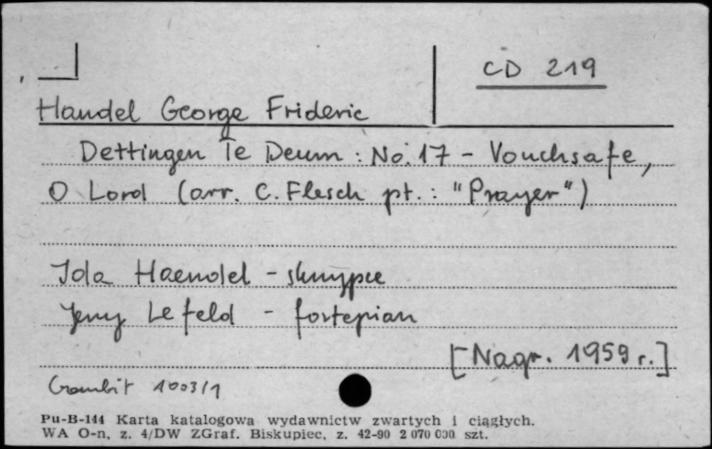 CD 219
Handel George Frideric
Dettingen Te Deum : No. 17 - Vouchsafe,
O Lord (arr. C. Flesch pt. : "Prayer")
Ida Haendel - skrzypce
Jerzy Lefeld - fortepian
[Nagr. 1959 r.]
Gambit 1003/1
Pu-B-144 Karta katalogowa wydawnictw zwartych i ciągłych.
WA O-n, z. 4/DW ZGraf. Biskupiec, z. 42-90 2 070 000 szt.